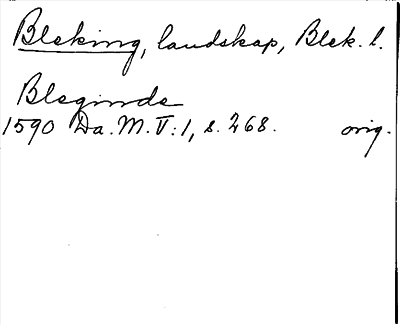 Bleking, landskap, Blek. l.
Bleginde
1590 Da. M. V: 1, s. 268. orig.